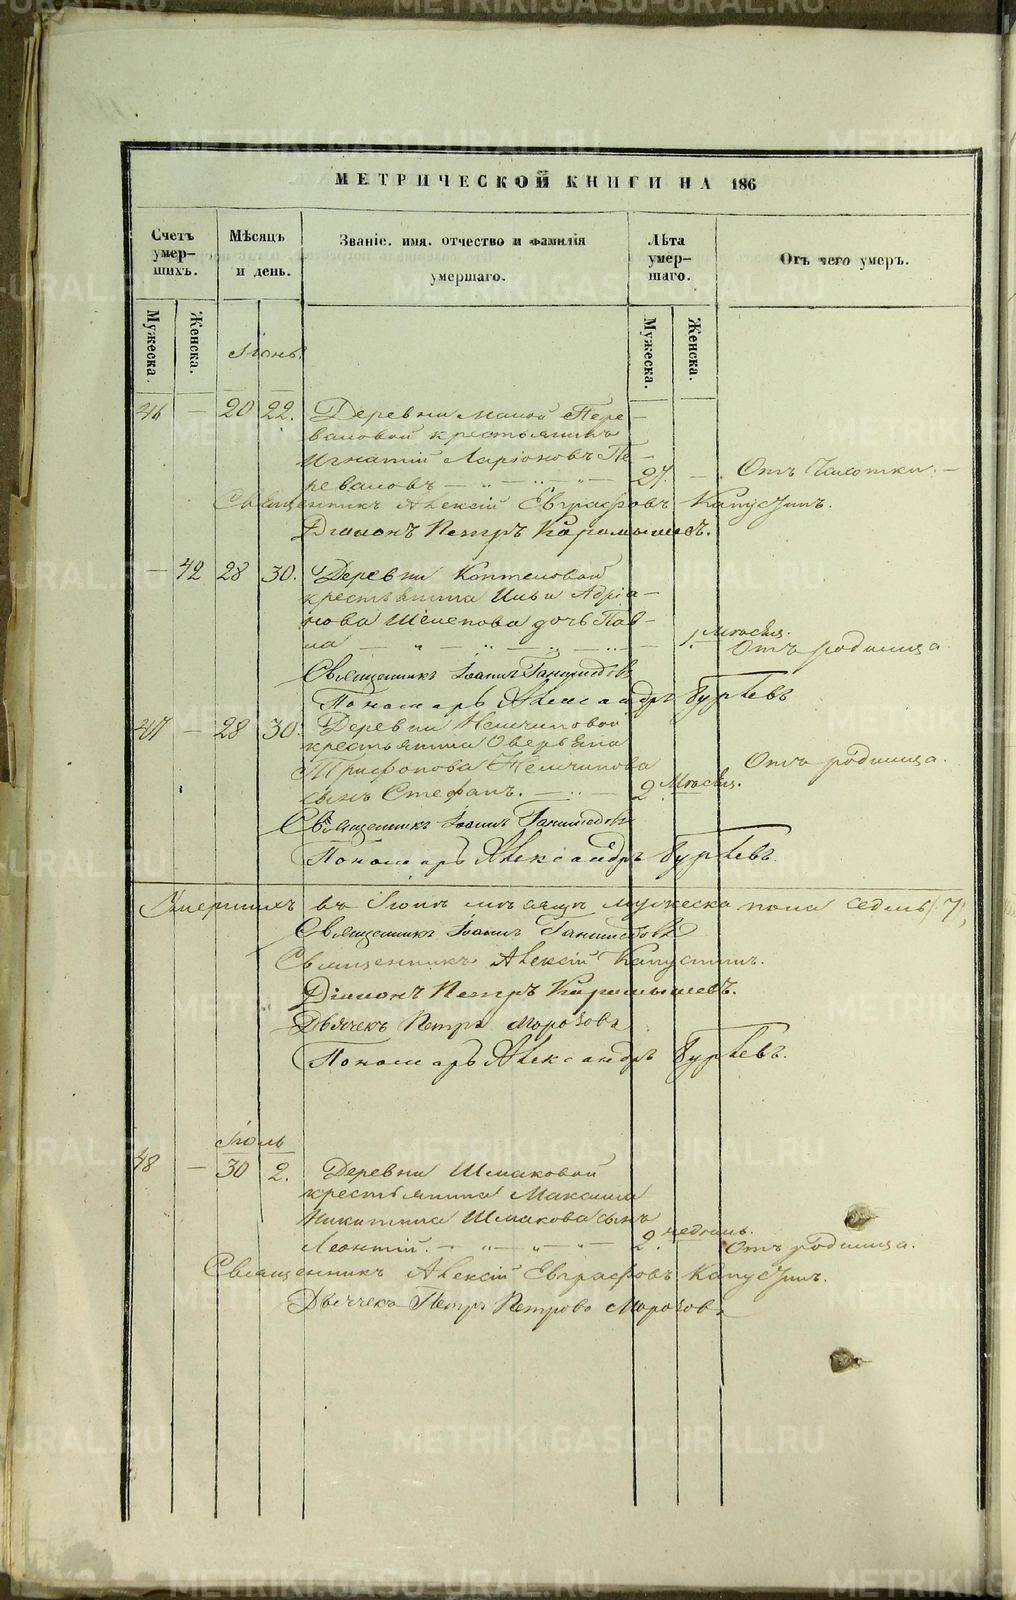 МЕТРИЧЕСКОЙ КНИГИ НА 186
Счетъ умер-шихъ.
Мѣсяцъ и день.
Званіе. имя. отчество и фамилія умершаго.
Лѣта умер-шаго.
Отъ чего умеръ.
Мужеска.
Женска.
Мужеска.
Женска.
Іюнь.
46 — 20 22. Деревни Малой Пере-
валовой крестьянинъ
Игнатій Ларіоновъ Пе-
реваловъ 27. — Отъ Чахотки.
Священникъ Алексій Евграфовъ Капустинъ.
Діаконъ Петръ Карамышевъ.
— 42 28 30. Деревни Коптеловой
крестьянина Ильи Адріа-
нова Шелепова дочь Пав-
ла 1. мѣсяц. Отъ родимца.
Священникъ Іоаннъ Ганимедовъ
Пономарь Александръ Гурьевъ
47 — 28 30. Деревни Нелчиновой
крестьянина Оверьяна
Трифонова Нелчинова
сынъ Стефанъ. 2. мѣсяц. Отъ родимца.
Священникъ Іоаннъ Ганимедовъ
Пономарь Александръ Гурьевъ.
Умершихъ въ Іюнѣ мѣсяцѣ мужеска пола седмь /7/,
Священникъ Іоаннъ Ганимедовъ
Священникъ Алексій Капустинъ.
Діаконъ Петръ Карамышевъ.
Дьячекъ Петръ Морозовъ
Пономарь Александръ Гурьевъ.
Іюль
48 — 30 2. Деревни Шмаковой
крестьянина Максима
Никитина Шмакова сынъ
Леонтій. 2. недѣль. Отъ родимца.
Священникъ Алексій Евграфовъ Капустинъ.
Дьячекъ Петръ Петровъ Морозовъ
METRIKI.GASO-URAL.RU